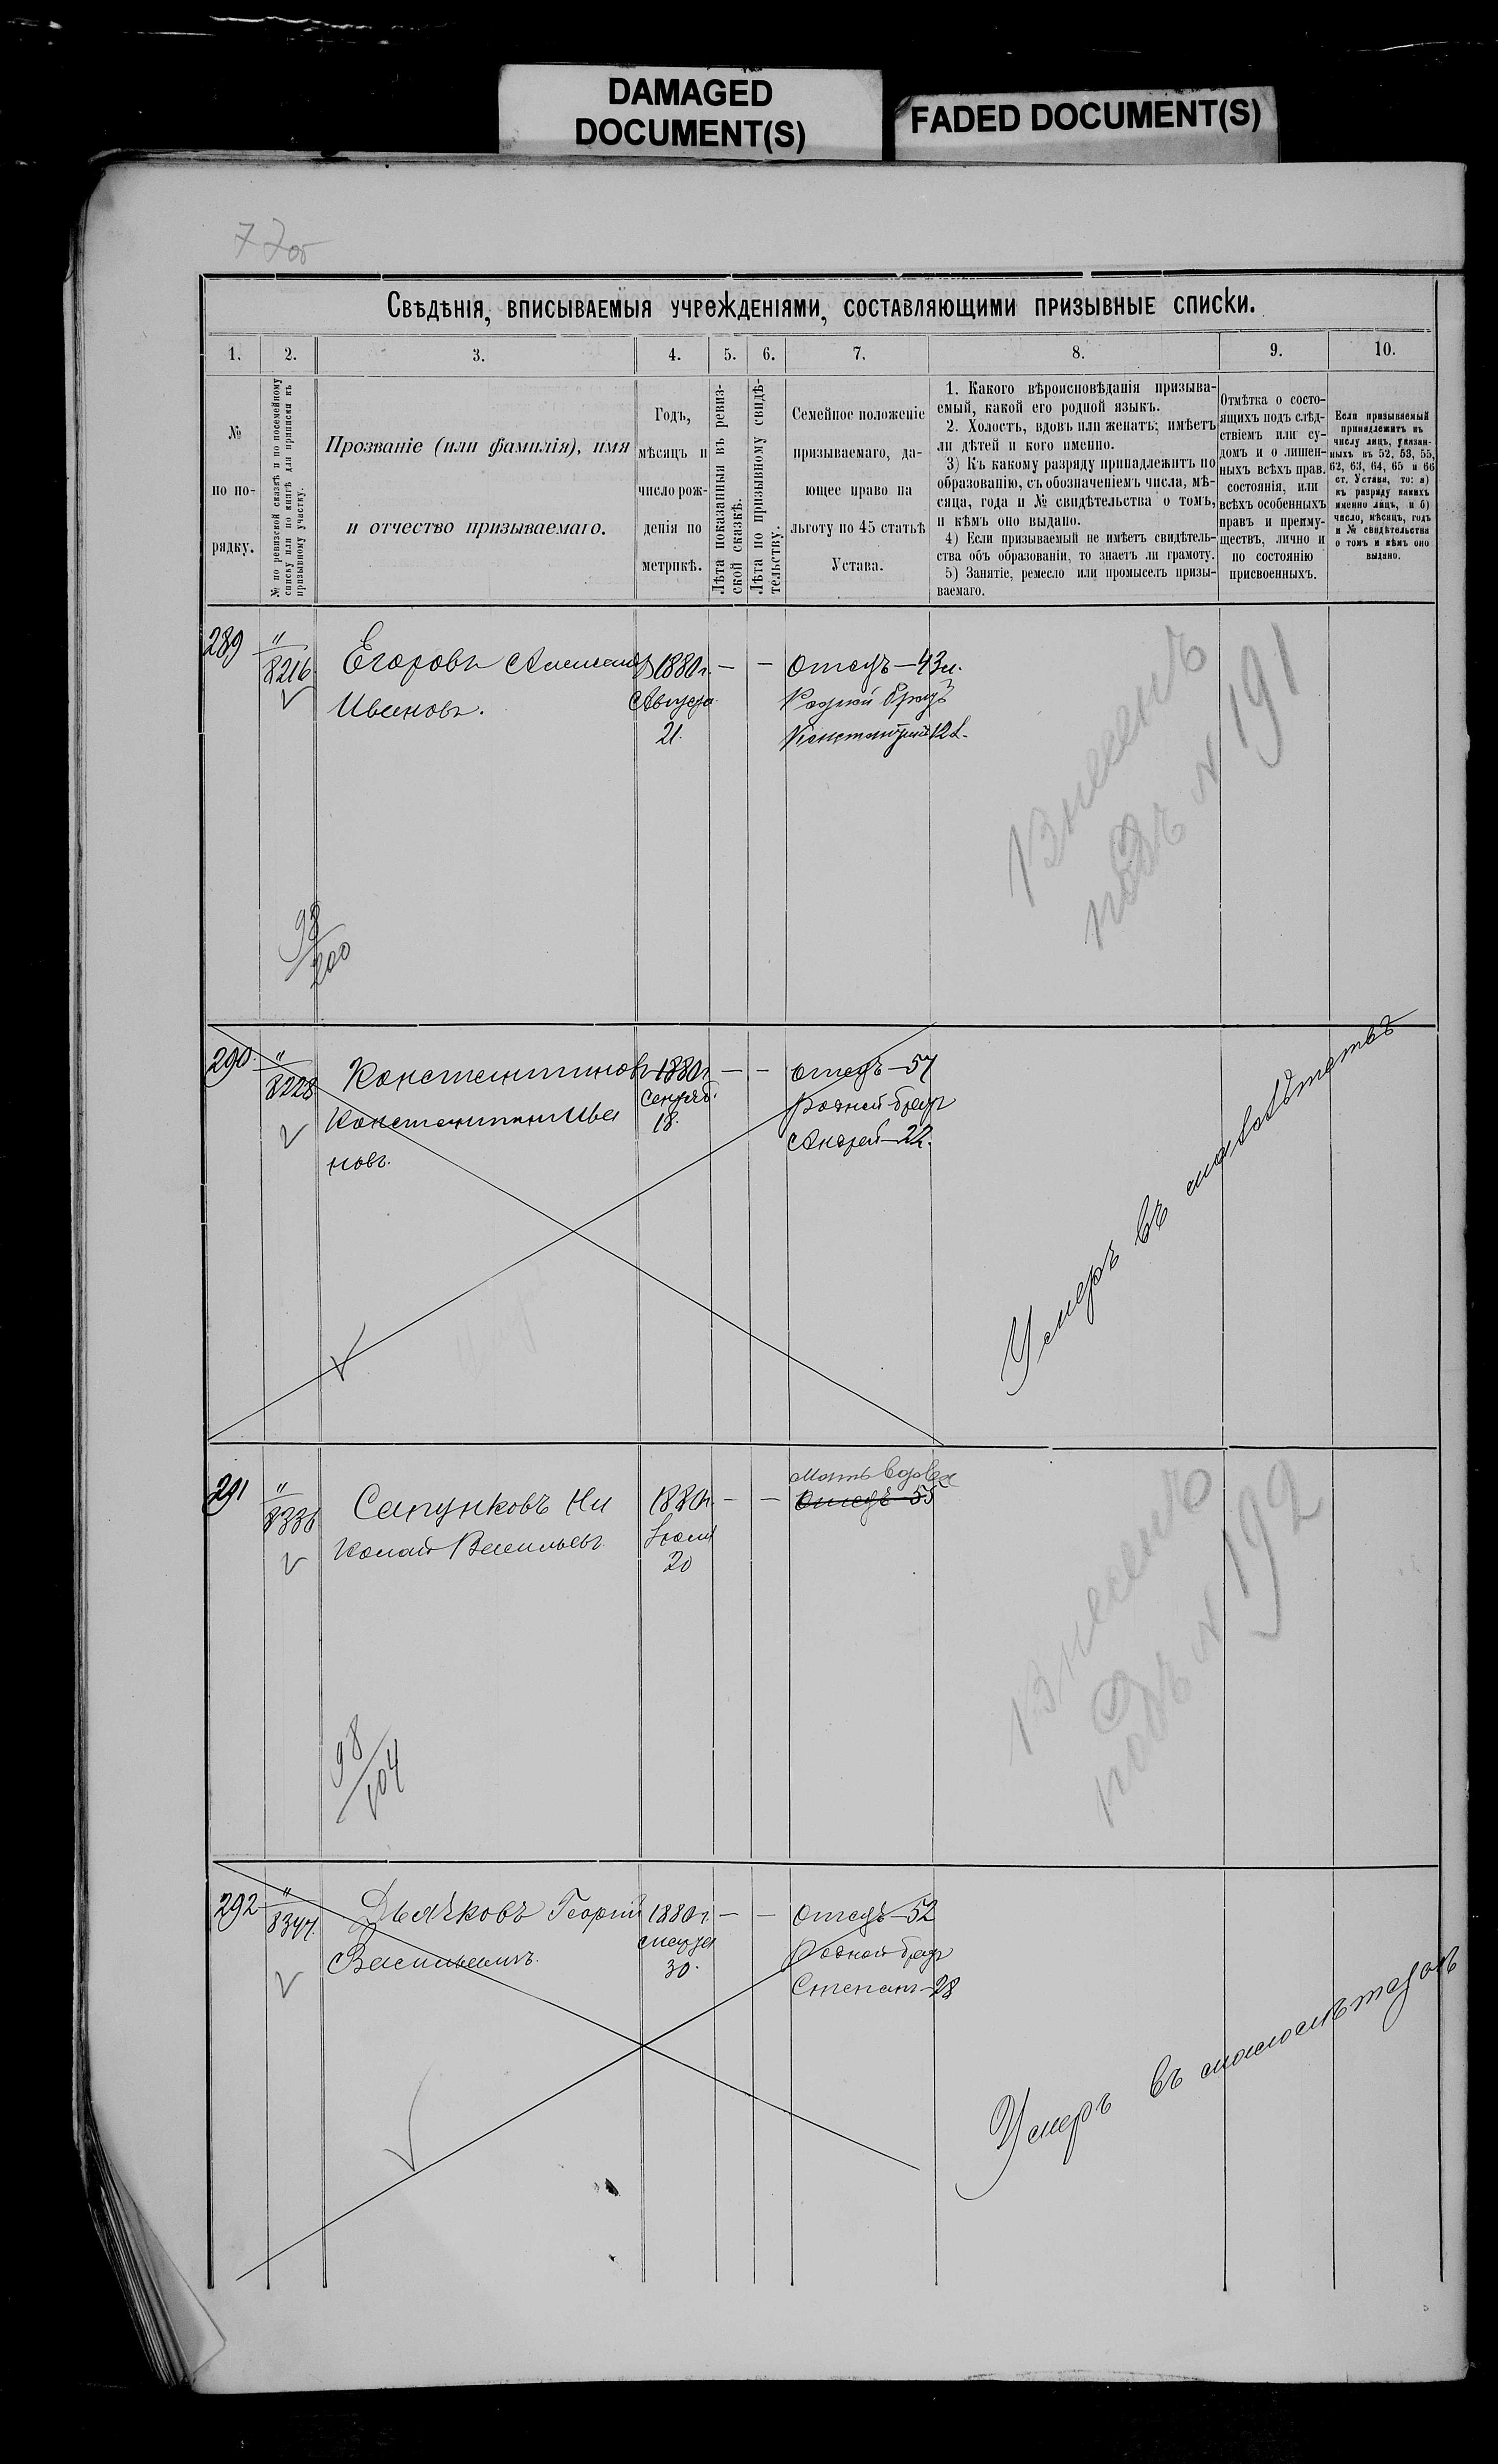 DAMAGED
DOCUMENT(S)
FADED DOCUMENT(S)
77об
Свѣдѣнія, вписываемыя учрежденіями, составляющими призывные списки.
1. 2. 3. 4. 5. 6. 7. 8. 9. 10.
№
по по-
рядку.
№ по ревизской сказкѣ и по посемейному
списку или по книгѣ для приписки къ
призывному участку.
Прозваніе (или фамилія), имя
и отчество призываемаго.
Годъ,
мѣсяцъ и
число рож-
денія по
метрикѣ.
Лѣта показанныя въ ревиз-
ской сказкѣ.
Лѣта по призывному свидѣ-
тельству.
Семейное положеніе
призываемаго, да-
ющее право на
льготу по 45 статьѣ
Устава.
1. Какого вѣроисповѣданія призыва-
емый, какой его родной языкъ.
2. Холостъ, вдовъ или женатъ; имѣетъ
ли дѣтей и кого именно.
3) Къ какому разряду принадлежитъ по
образованію, съ обозначеніемъ числа, мѣ-
сяца, года и № свидѣтельства о томъ,
и кѣмъ оно выдано.
4) Если призываемый не имѣетъ свидѣтель-
ства объ образованіи, то знаетъ ли грамоту.
5) Занятіе, ремесло или промыселъ призы-
ваемаго.
Отмѣтка о состо-
ящихъ подъ слѣд-
ствіемъ или су-
домъ и о лишен-
ныхъ всѣхъ прав.
состоянія, или
всѣхъ особенныхъ
правъ и преиму-
ществъ, лично и
по состоянію
присвоенныхъ.
Если призываемый
принадлежитъ къ
числу лицъ, указан-
ныхъ въ 52, 53, 55,
62, 63, 64, 65 и 66
ст. Устава, то: а)
къ разряду какихъ
именно лицъ, и б)
число, мѣсяцъ, годъ
и № свидѣтельства
о томъ и кѣмъ оно
выдано.
289
"
8216
Егоровъ
Ивановъ.
1880г.
Августа
21.
— —
Отецъ — 43л.
Родной братъ
Константинъ 12л.
Внесенъ
подъ № 191
98/200
290.
"
8228
Константиновъ
Константинъ Ива
новъ.
1880г
Сентяб.
18.
— —
Отецъ — 57
Родной братъ
Андрей — 22.
Умеръ въ малолѣтствѣ
291
"
8336
Сапунковъ Ни
колай Васильевъ.
1880г.
Іюля
20
— —
Мать вдова
Отецъ — 55
Внесенъ
подъ № 192
98/104
292
"
8347.
Дьячковъ Георгій
Васильевичъ.
1880г
марта
30.
— —
Отецъ — 52
Родной братъ
Степанъ — 28
Умеръ въ